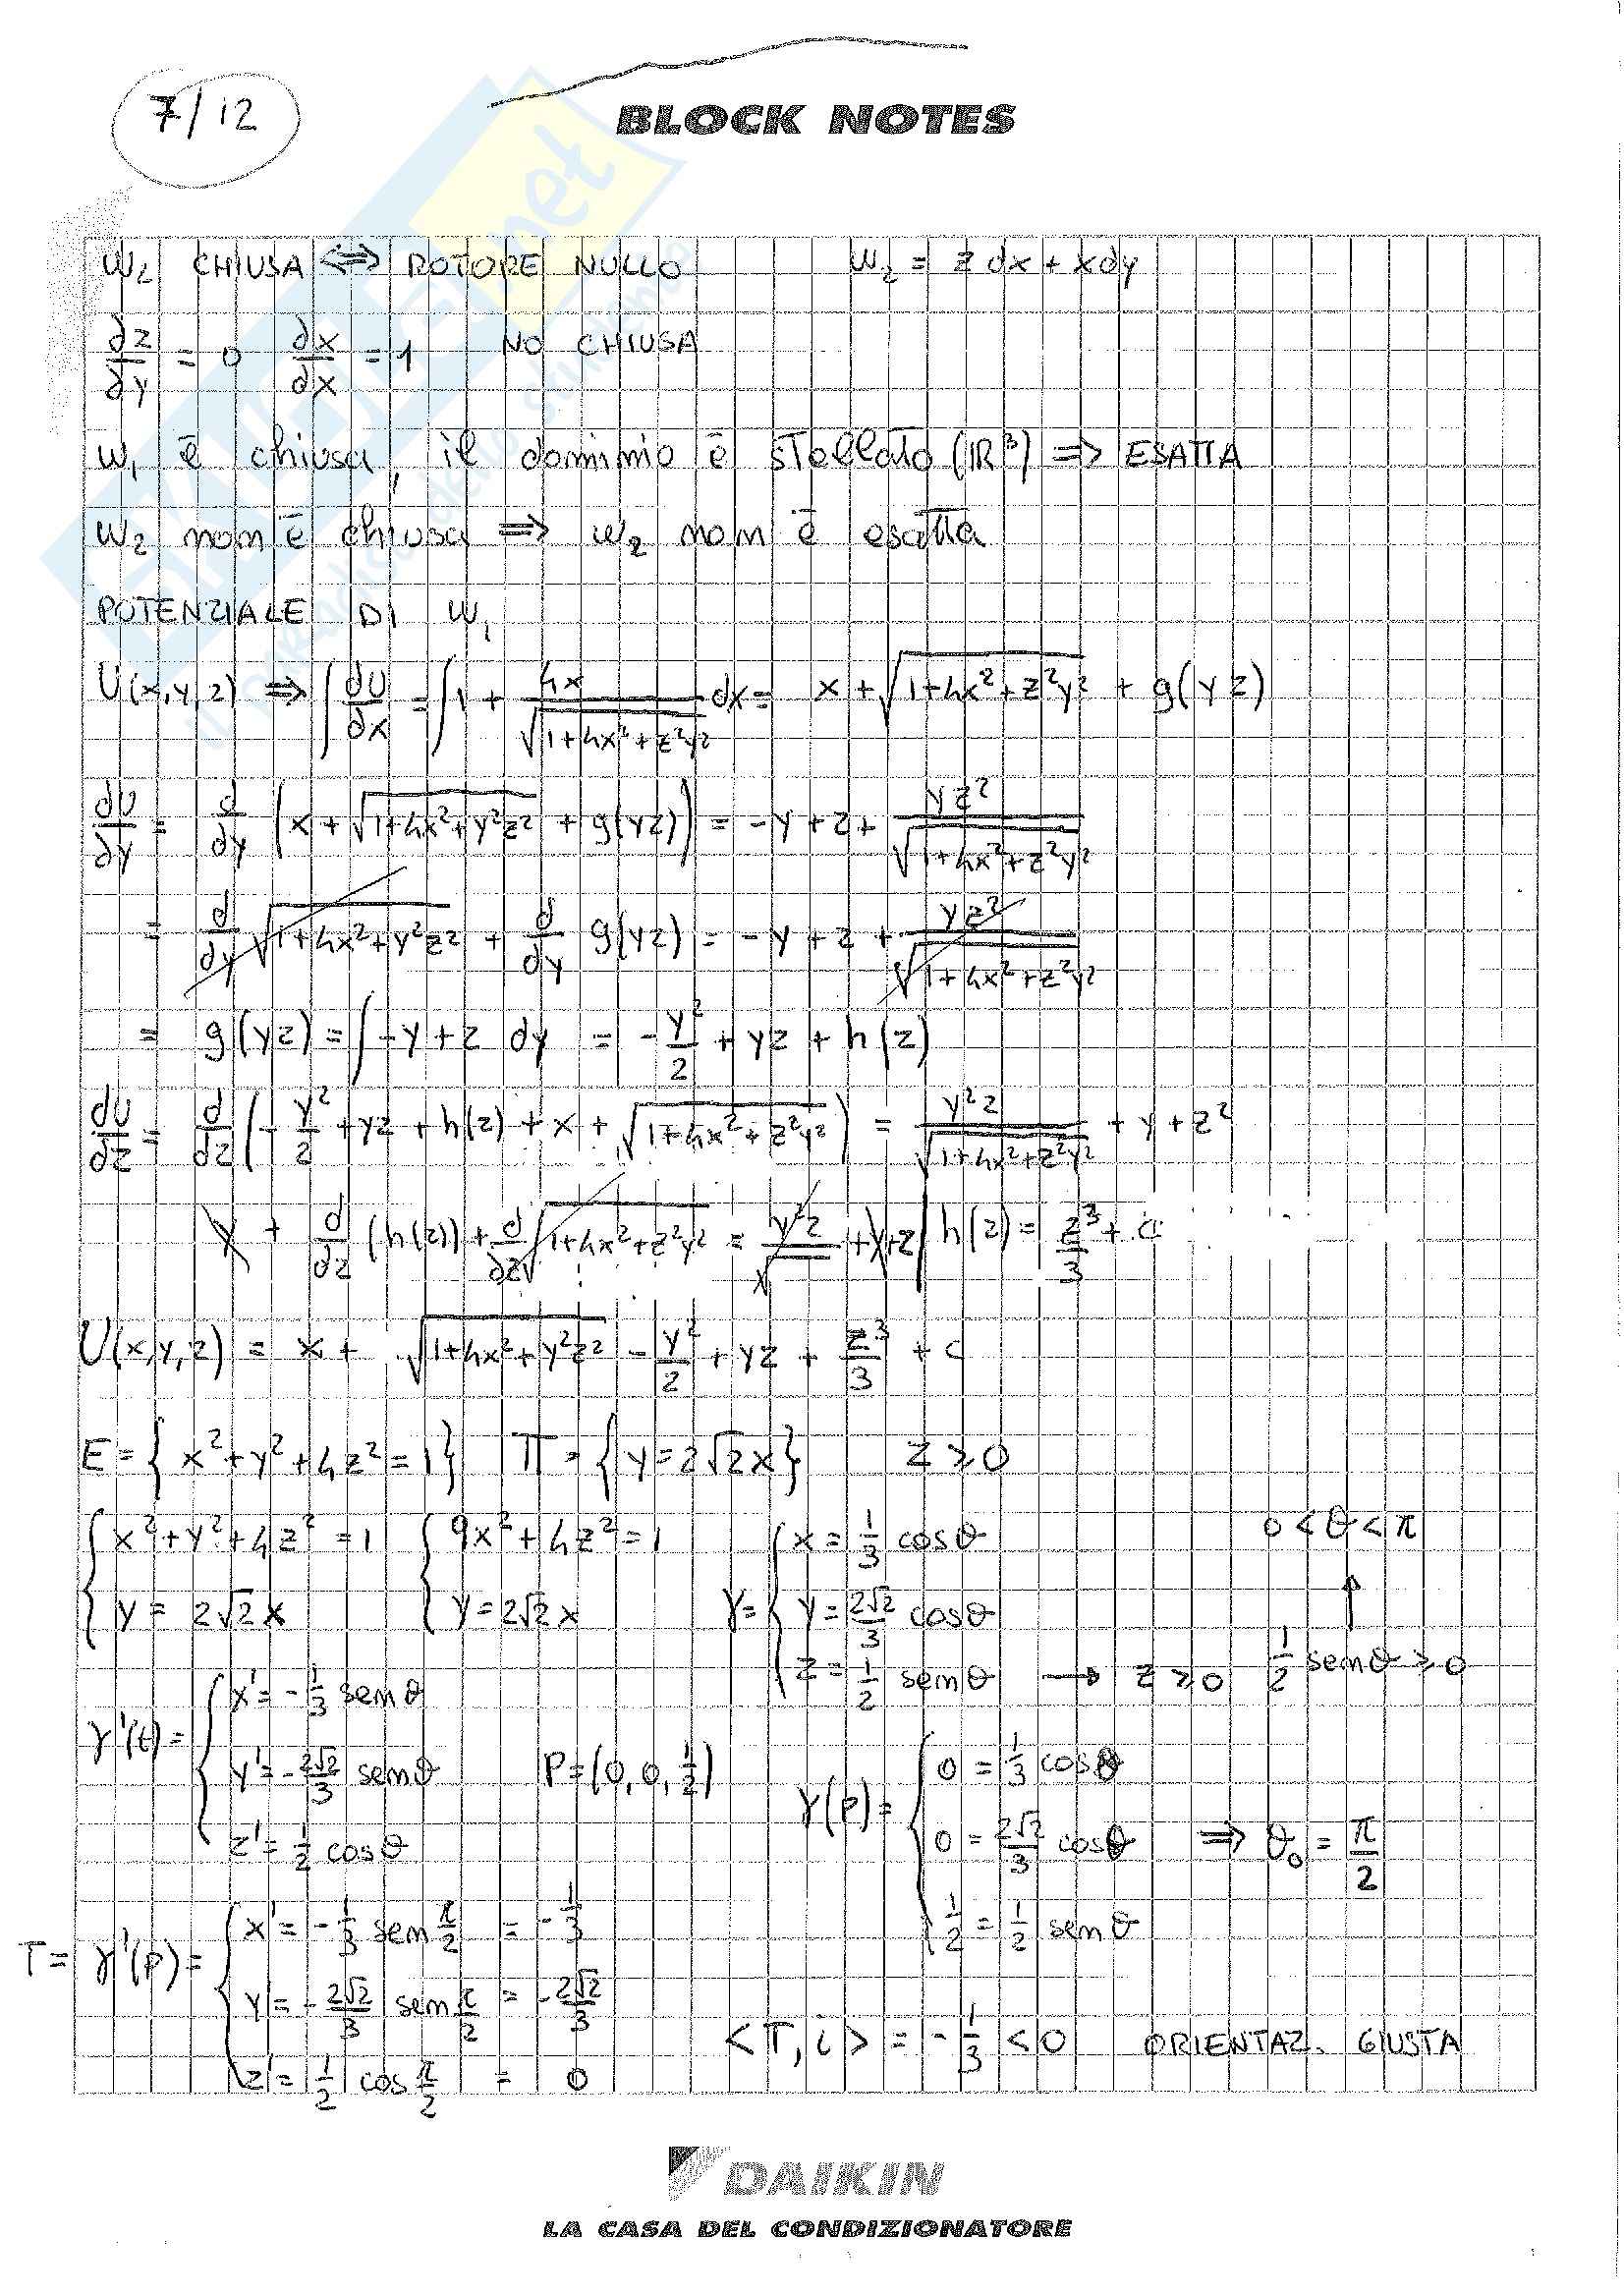 7/12
BLOCK NOTES
W₂ CHIUSA ⟺ ROTORE NULLO W₂ = z dx + x dy
∂z/∂y = 0 ∂x/∂x = 1 NO CHIUSA
W₁ è chiusa, il dominio è stellato (ℝ³) ⟹ ESATTA
W₂ non è chiusa ⟹ W₂ non è esatta
POTENZIALE DI W₁
U(x,y,z) ⟹ ∫ ∂U/∂x = ∫ 1 + 4x/√(1+4x²+z²y²) dx = x + √(1+4x²+z²y²) + g(yz)
∂U/∂y = d/dy (x + √(1+4x²+y²z²) + g(yz)) = -y + z + yz²/√(1+4x²+z²y²)
= d/dy √(1+4x²+y²z²) + d/dy g(yz) = -y + z + yz²/√(1+4x²+z²y²)
= g(yz) = ∫ -y + z dy = -y²/2 + yz + h(z)
∂U/∂z = d/dz (-y²/2 + yz + h(z) + x + √(1+4x²+z²y²)) = y²z/√(1+4x²+z²y²) + y + z²
y + d/dz (h(z)) + d/dz √(1+4x²+z²y²) = y²z/√ + y + z² h(z) = z³/3 + c
U(x,y,z) = x + √(1+4x²+y²z²) - y²/2 + yz + z³/3 + c
E = { x² + y² + 4z² = 1 } Π = { y = 2√2x } z ≥ 0
{ x² + y² + 4z² = 1 { 9x² + 4z² = 1 { x = 1/3 cosθ 0 < θ < π
{ y = 2√2 x { y = 2√2 x γ = { y = 2√2/3 cosθ ↑
{ z = 1/2 senθ → z ≥ 0 1/2 senθ ≥ 0
γ'(t) = { x' = -1/3 senθ
y' = -2√2/3 senθ P = (0, 0, 1/2) γ(p) = { 0 = 1/3 cosθ
z' = 1/2 cosθ 0 = 2√2/3 cosθ ⟹ θ₀ = π/2
T = γ'(p) = { x' = -1/3 sen π/2 = -1/3 1/2 = 1/2 senθ
y' = -2√2/3 sen π/2 = -2√2/3
<T, i> = -1/3 < 0 ORIENTAZ. GIUSTA
z' = 1/2 cos π/2 = 0
DAIKIN
LA CASA DEL CONDIZIONATORE